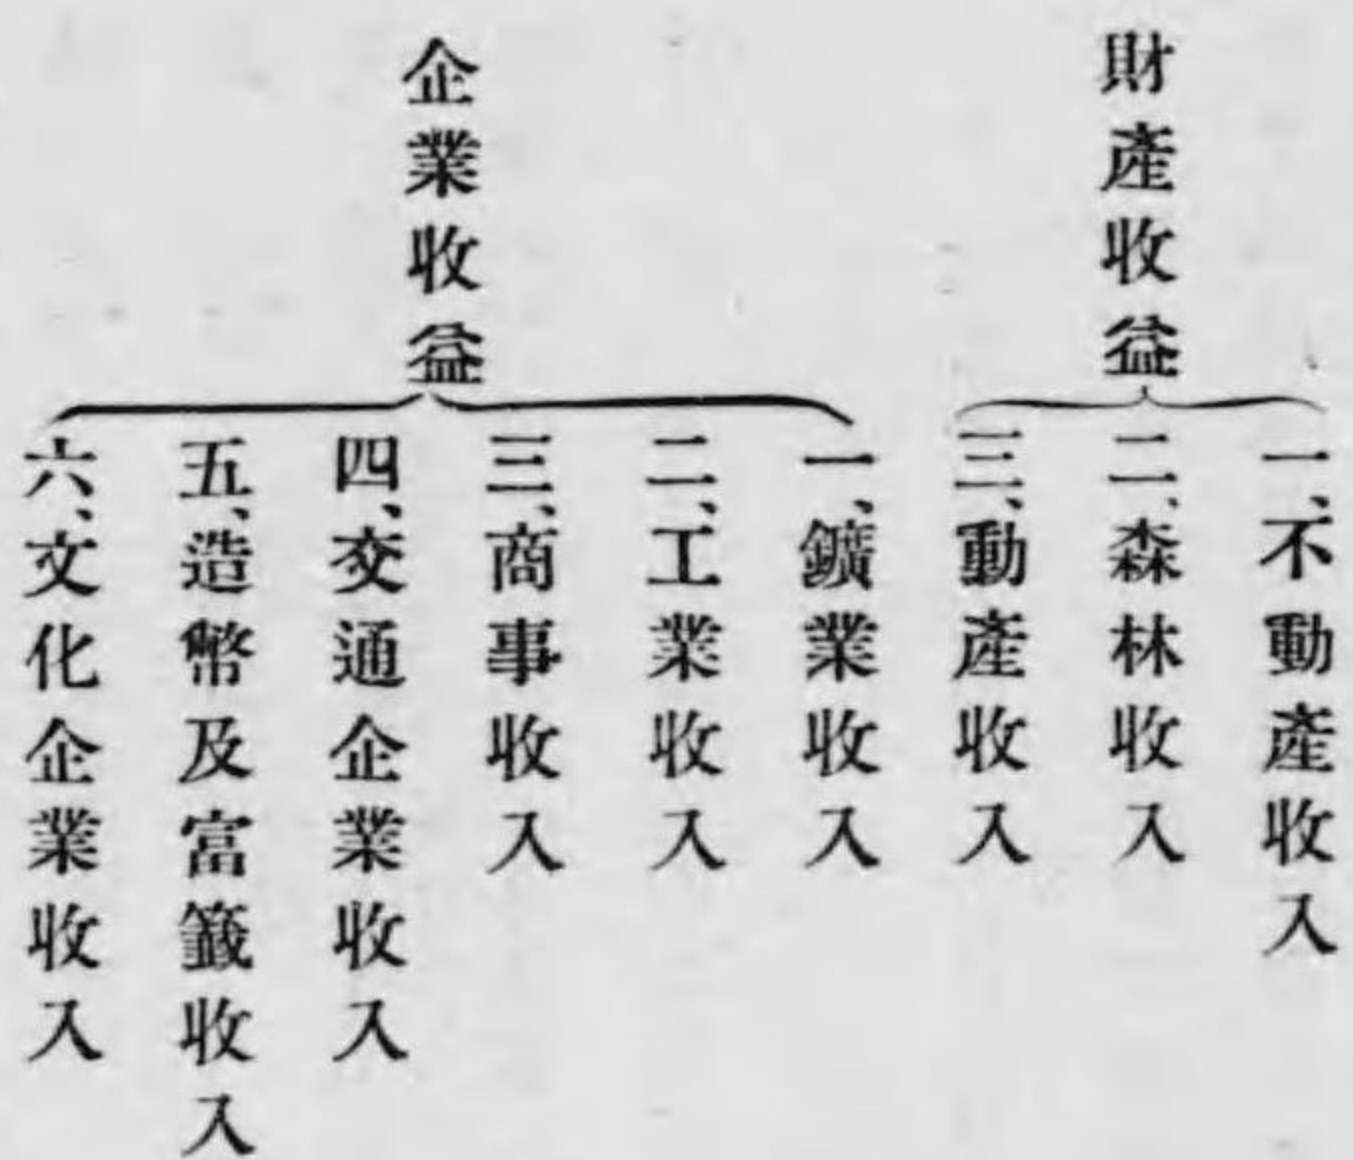 財產收益
一、不動產收入
二、森林收入
三、動產收入
企業收益
一、鑛業收入
二、工業收入
三、商事收入
四、交通企業收入
五、造幣及富籤收入
六、文化企業收入